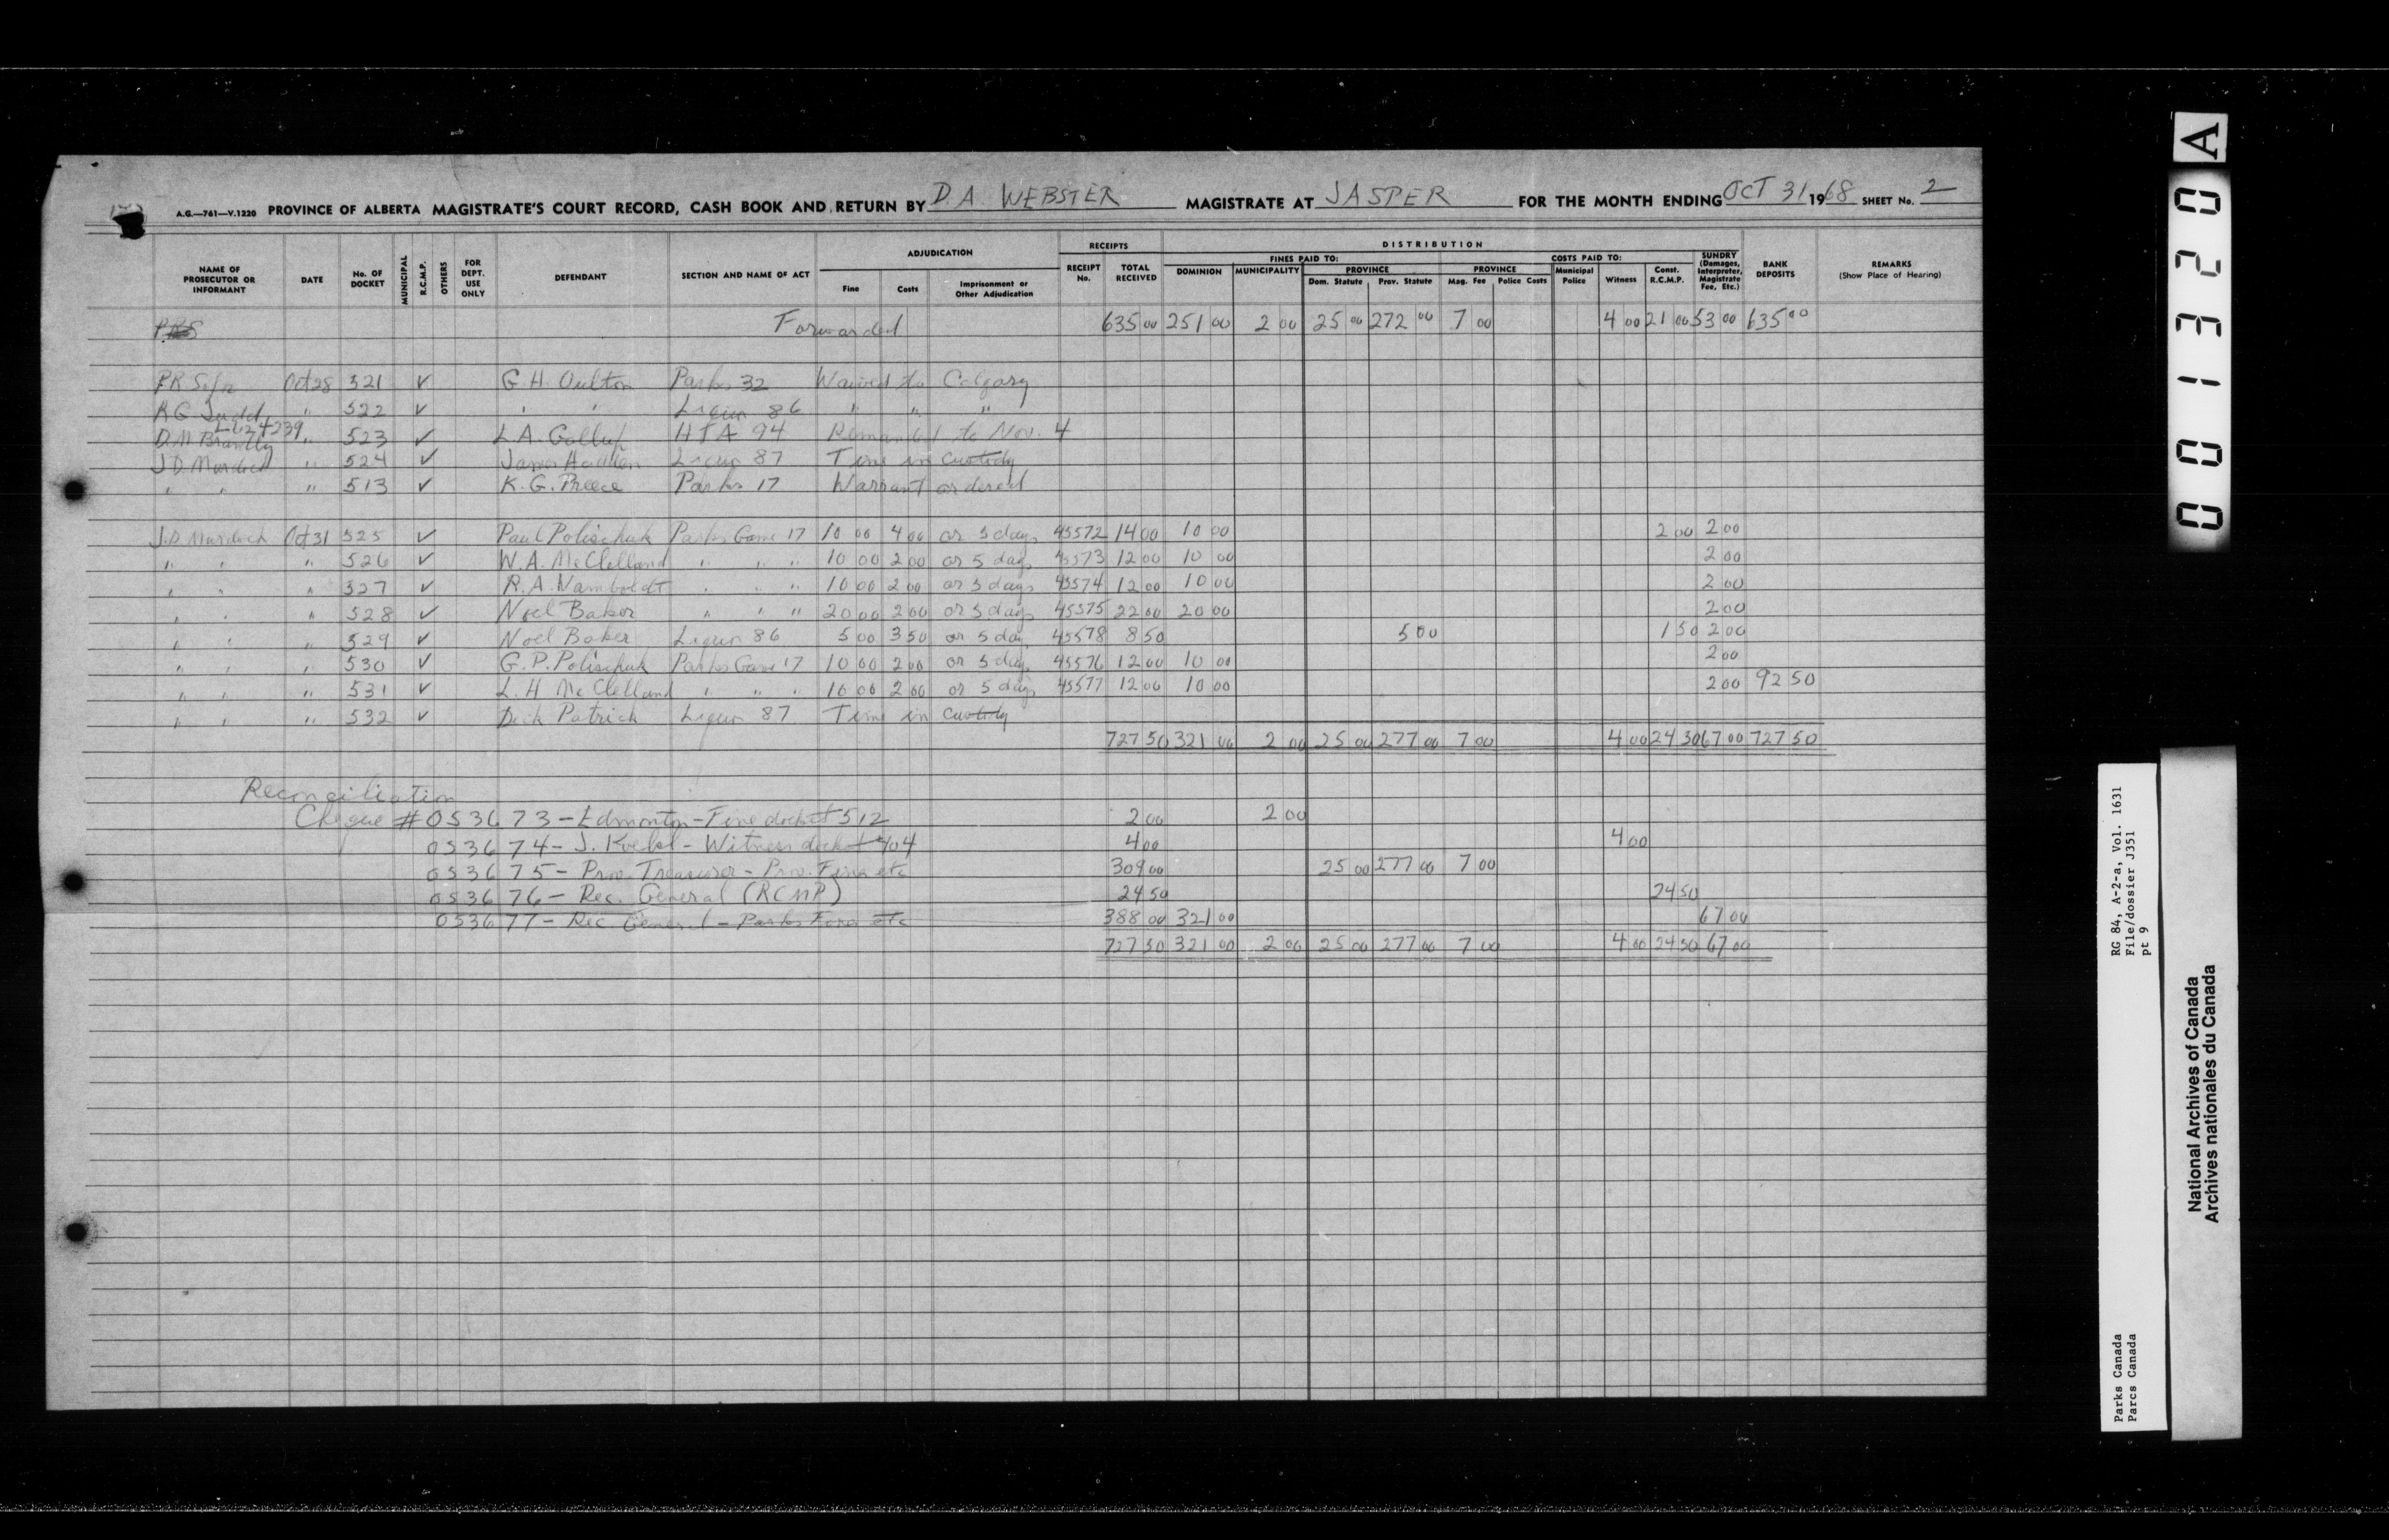 A.G.—761—V.1220 PROVINCE OF ALBERTA MAGISTRATE'S COURT RECORD, CASH BOOK AND RETURN BY D.A. WEBSTER MAGISTRATE AT JASPER FOR THE MONTH ENDING OCT 31 1968 SHEET No. 2
NAME OF PROSECUTOR OR INFORMANT DATE No. OF DOCKET MUNICIPAL R.C.M.P. OTHERS FOR DEPT. USE ONLY DEFENDANT SECTION AND NAME OF ACT ADJUDICATION Fine Costs Imprisonment or Other Adjudication RECEIPTS RECEIPT No. TOTAL RECEIVED DISTRIBUTION FINES PAID TO: DOMINION MUNICIPALITY PROVINCE Dom. Statute Prov. Statute COSTS PAID TO: PROVINCE Mag. Fee Police Costs Municipal Police Witness Const. R.C.M.P. SUNDRY (Damages, Interpreter, Magistrate Fee, Etc.) BANK DEPOSITS REMARKS (Show Place of Hearing)
Forwarded 635 00 251 00 2 00 25 00 272 00 7 00 4 00 21 00 53 00 635 00
Oct 28 521 ✓ G.H. Oulton Parks 32 Waived to Calgary
R G Judd " 522 ✓ " " Liquor 86 " " "
4239
D.M. Brantly " 523 ✓ L.A. Gallup HTA 94 Remanded to Nov. 4
J D. Murdoch " 524 ✓ James Liquor 87 Time in Custody
" " " 513 ✓ K.G. Preece Parks 17 Warrant ordered
J.D. Murdoch Oct 31 525 ✓ Paul Polischuk Parks Game 17 10 00 4 00 or 5 days 45572 14 00 10 00 2 00 2 00
" " " 526 ✓ W.A. McClelland " " " 10 00 2 00 or 5 days 45573 12 00 10 00 2 00
" " " 527 ✓ R.A. Namboldt " " " 10 00 2 00 or 5 days 45574 12 00 10 00 2 00
" " " 528 ✓ Noel Baker " " " 20 00 2 00 or 5 days 45575 22 00 20 00 2 00
" " " 529 ✓ Noel Baker Liquor 86 5 00 3 50 or 5 day 45578 8 50 5 00 1 50 2 00
" " " 530 ✓ G.P. Polischuk Parks Game 17 10 00 2 00 or 5 days 45576 12 00 10 00 2 00
" " " 531 ✓ L.H McClelland " " " 10 00 2 00 or 5 days 45577 12 00 10 00 2 00 92 50
" " " 532 ✓ Dick Patrick Liquor 87 Time in Custody
727 50 321 00 2 00 25 00 277 00 7 00 4 00 24 50 67 00 727 50
Reconciliation
Cheque # 053673 - Edmonton - Fine docket 512 2 00 2 00
053674 - J. - Witness docket 404 4 00 4 00
053675 - Prov. Treasurer - Prov. Fines etc 309 00 25 00 277 00 7 00
053676 - Rec. General (RCMP) 24 50 24 50
053677 - Rec. General - Parks Fines etc 388 00 321 00 67 00
727 50 321 00 2 00 25 00 277 00 7 00 4 00 24 50 67 00
001320 A
RG 84, A-2-a, Vol. 1631
File/dossier J351
pt 9
Parks Canada
Parcs Canada
National Archives of Canada
Archives nationales du Canada